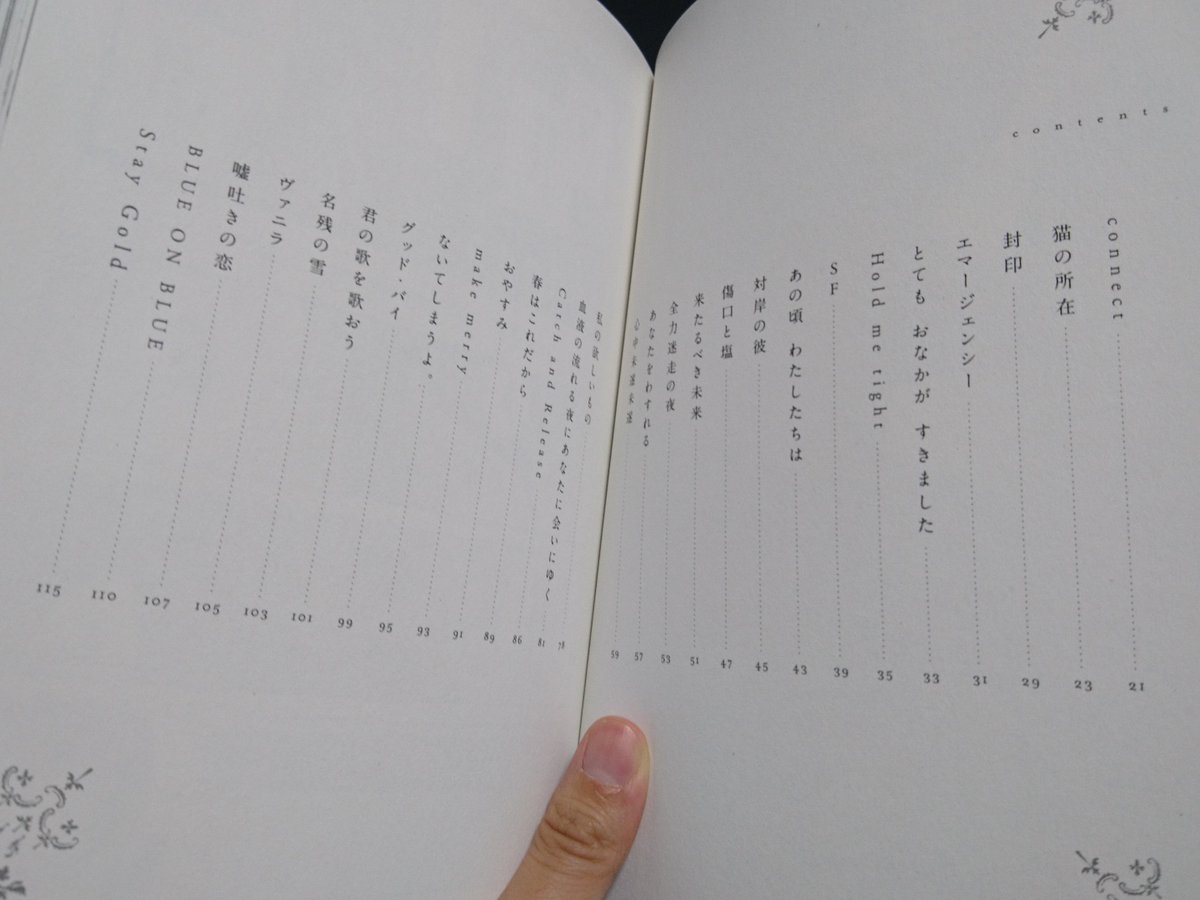 contents
connect 21
猫の所在 23
封印 29
エマージェンシー 31
とても おなかが すきました 33
Hold me tight 35
SF 39
あの頃 わたしたちは 43
対岸の彼 45
傷口と塩 47
来たるべき未来 51
全力迷走の夜 53
あなたをわすれる 57
心中未遂未遂 59
私の欲しいもの 78
血液の流れる夜にあなたに会いにゆく 81
Catch and Release 86
春はこれだから 89
おやすみ 91
make merry 93
ないてしまうよ。 95
グッド・バイ 99
君の歌を歌おう 101
名残の雪 103
ヴァニラ 105
嘘吐きの恋 107
BLUE ON BLUE 110
Stay Gold 115